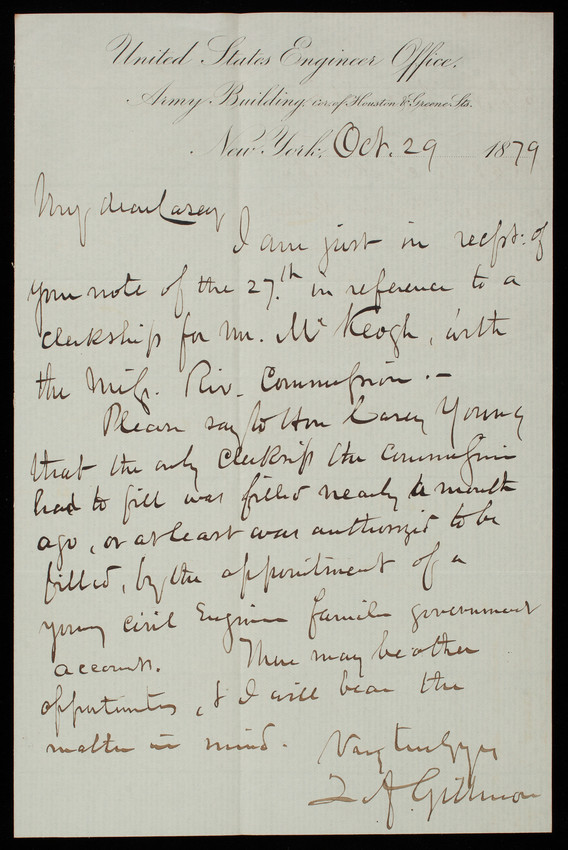 United States Engineer Office.
Army Building, cor. of Houston & Greene Sts.
New York, Oct. 29 1879
My dear Casey
I am just in recpt. of
your note of the 27th. in reference to a
clerkship for Mr. McKeogh, with
the Miss. Riv. Commission. –
Please say to Hon Casey Young
that the only clerkship the commission
had to fill was filled nearly a month
ago, or at least was authorized to be
filled, by the appointment of a
young civil Engineer familr government
accounts. There may be other
opportunities, & I will bear the
matter in mind.
Very truly yrs
Q A Gillmore